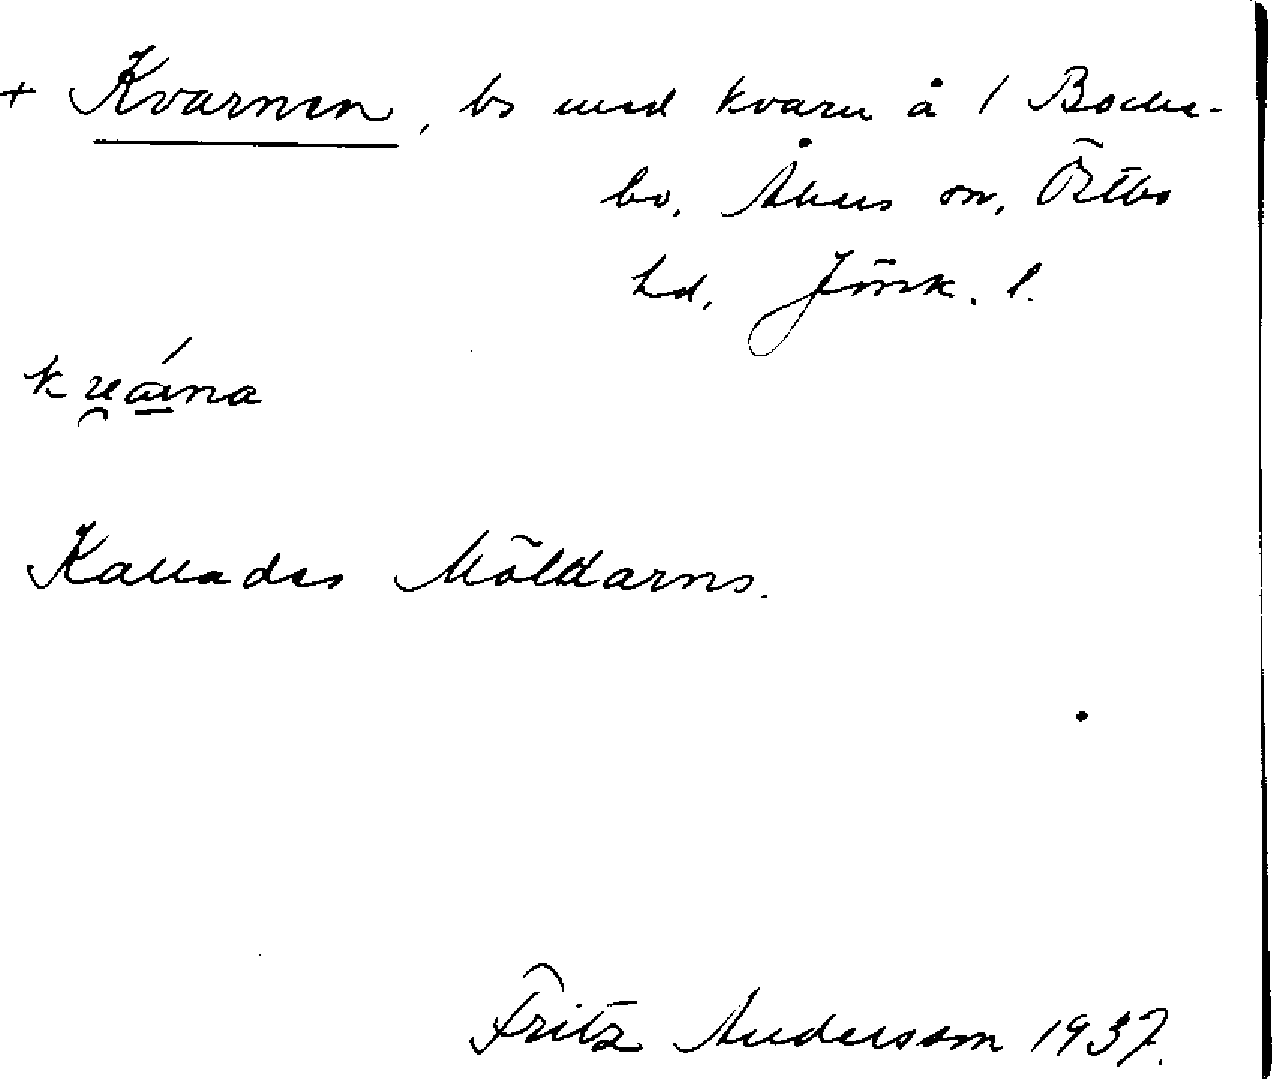 + Kvarnen, bs med kvarn å 1 Boche-
bo, Åkers sn, Östbo
hd, Jönk. l.
Kallades Möldarns.
Fritz Andersson 1937.